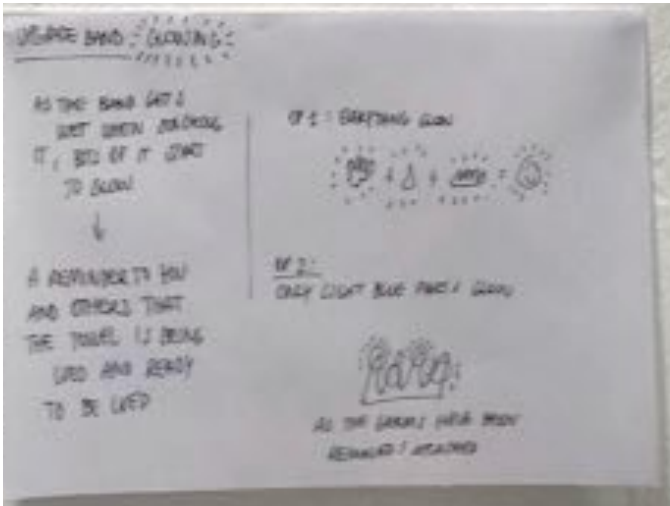 USAGE BAND: GLOWING:
AS THE BAND GETS
WET WHEN TOUCHING
IT, BITS OF IT START
TO GLOW
A REMINDER TO YOU
AND OTHERS THAT
THE TOWEL IS BEING
USED AND READY
TO BE USED
OP 1: EVERYTHING GLOW
+ + =
OP 2:
ONLY LIGHT BLUE PARTS GLOW
AS THE GERMS HAVE BEEN
REMOVED / ATTACHED